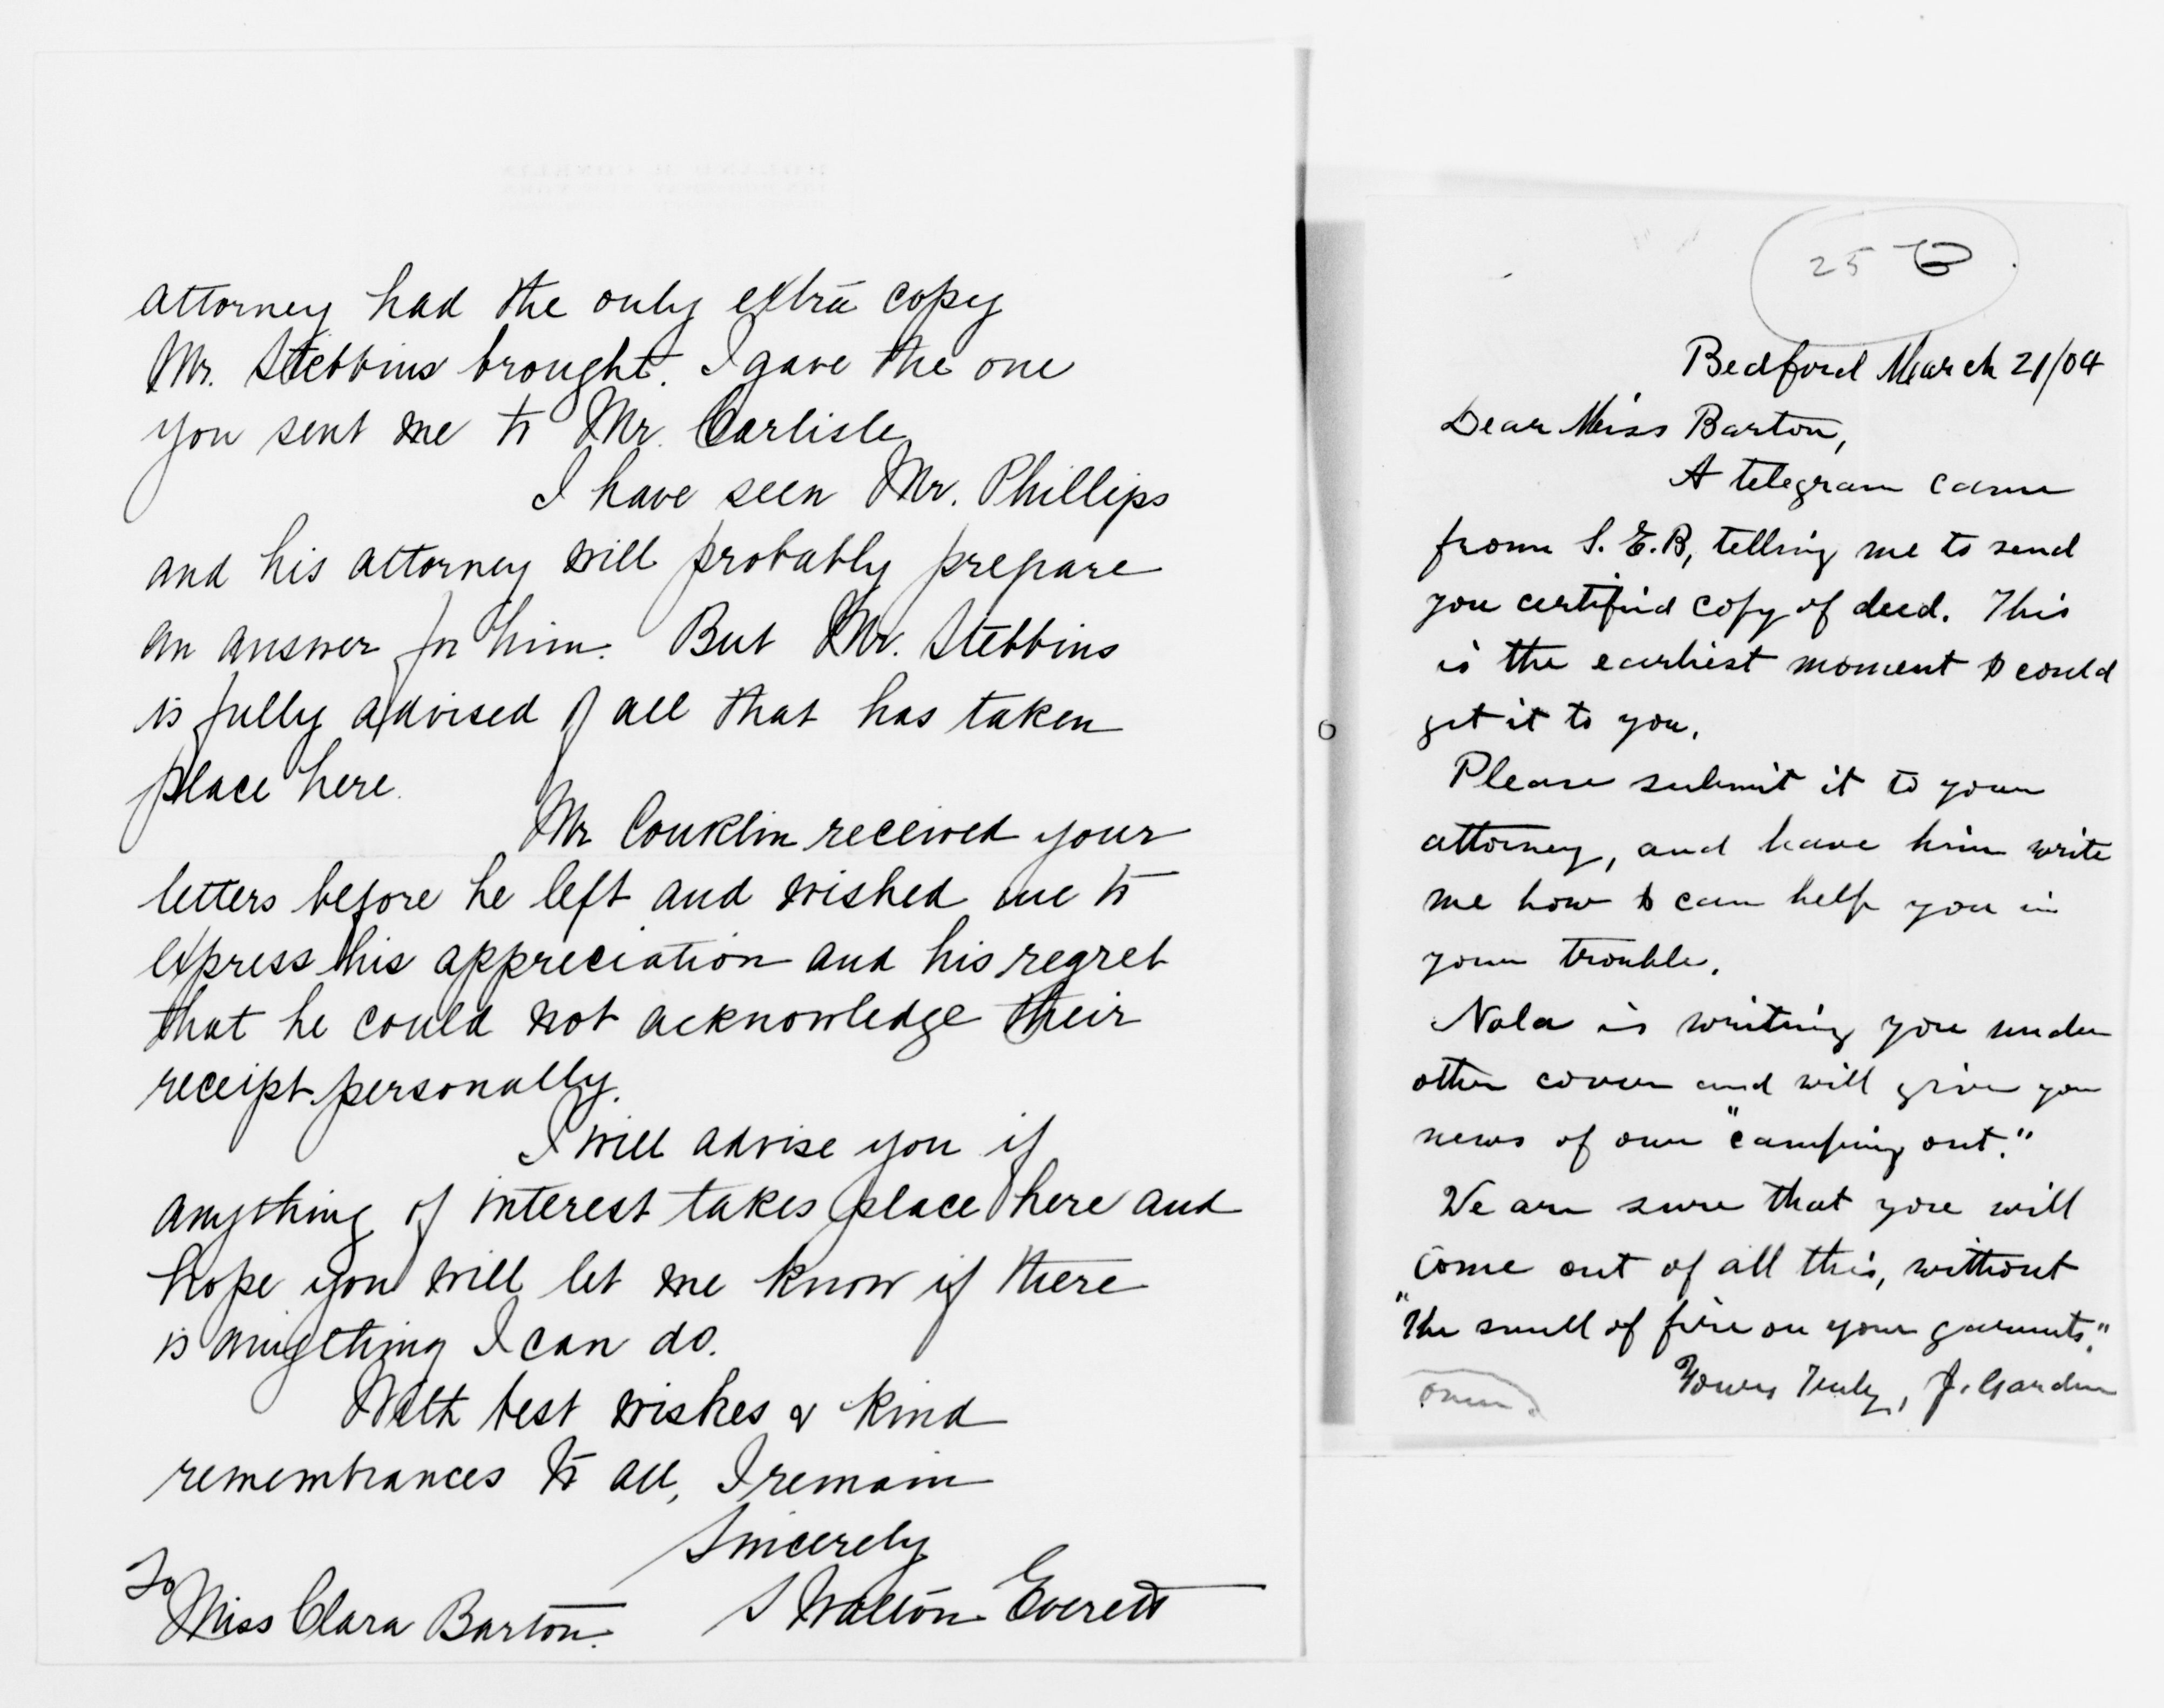 attorney had the only extra copy
Mr. Stebbins brought. I gave the one
you sent me to Mr. Carlisle
I have seen Mr. Phillips
and his attorney will probably prepare
an answer for him. But Mr. Stebbins
is fully advised of all that has taken
place here.
Mr Conklin received your
letters before he left and wished me to
express his appreciation and his regret
that he could not acknowledge their
receipt personally.
I will advise you if
anything of interest takes place here and
hope you will let me know if there
is anything I can do.
With best wishes & kind
remembrances to all, I remain
Sincerely
S Walton Everett
To
Miss Clara Barton.
25
Bedford March 21/04
Dear Miss Barton,
A telegram came
from S. E. B, telling me to send
you certified copy of deed. This
is the earliest moment I could
get it to you.
Please submit it to your
attorney, and have him write
me how I can help you in
your trouble.
Nola is writing you under
other cover and will give you
news of our "camping out."
We are sure that you will
come out of all this, without
"the smell of fire on your garments."
Yours Truly, J. Gardner
over